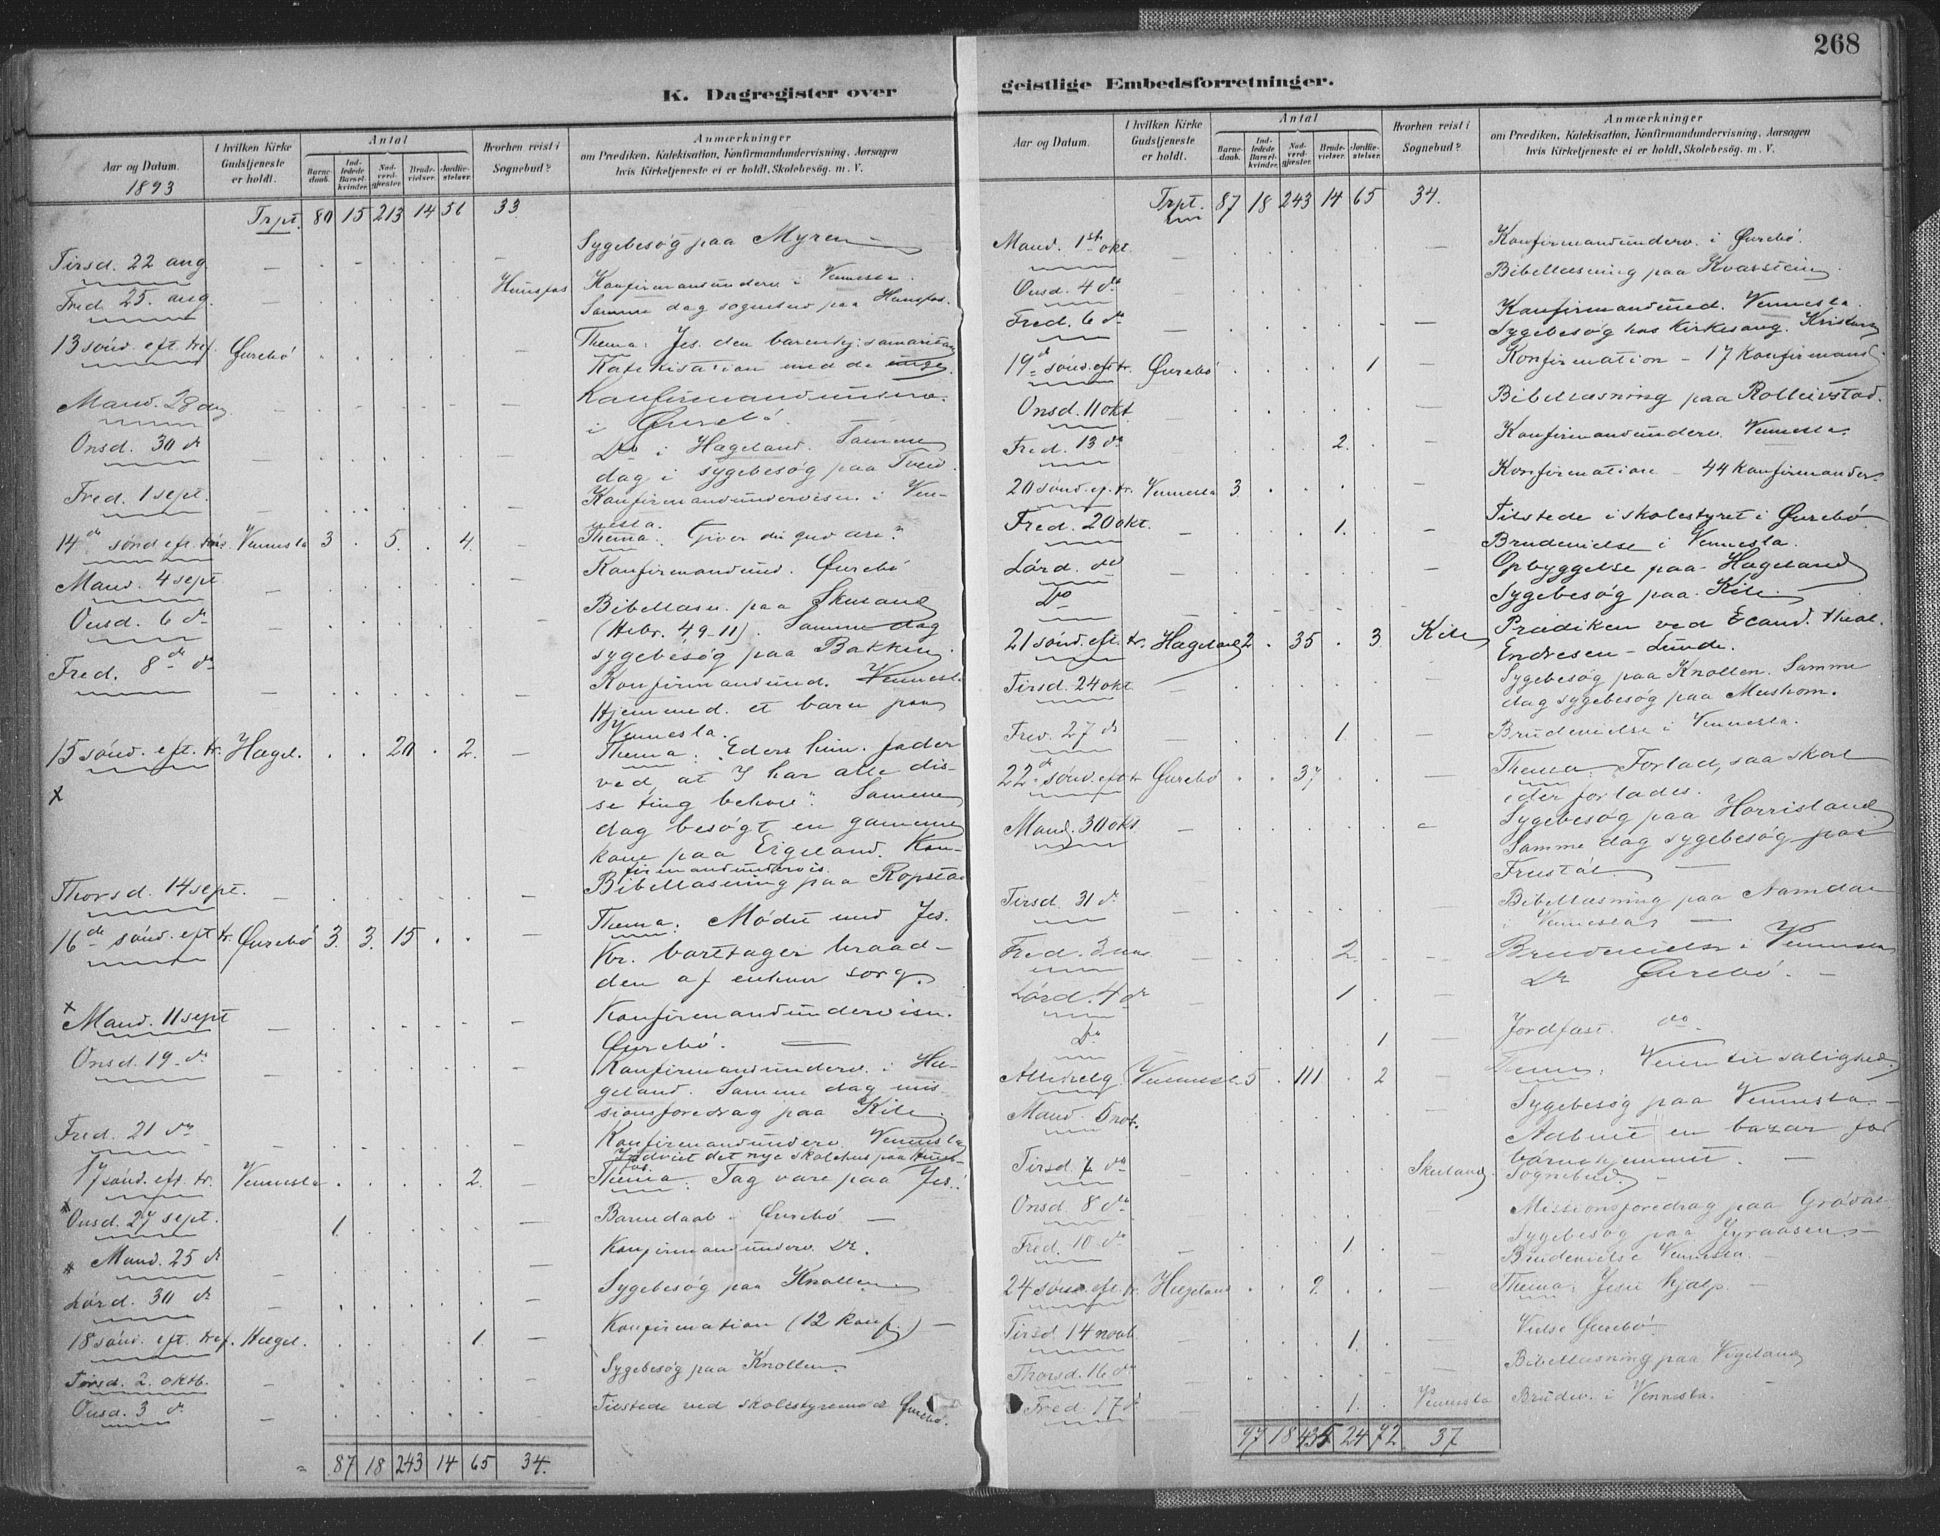 268
K. Dagregister over
geistlige Embedsforretninger.
Aar og Datum.
1893
I hvilken Kirke Gudstjeneste er holdt.
Antal
Barnedaab.
Indledede Barselkvinder.
Nadverdgjæster.
Brudevielser.
Jordfæstelser.
Hvorhen reist i Sognebud?
Anmærkninger
om Prædiken, Katekisation, Konfirmandundervisning, Aarsagen
hvis Kirketjeneste ei er holdt, Skolebesøg. m. V.
Trpt. 80 15 213 14 56 33
Tirsd. 22 aug. Sygebesøg paa Myren
Fred. 25. aug. Hunsfos Konfirmandunderv. i Vennesla.
Samme dag sognebud paa Hunsfos.
13 sönd. eft. tref. Øvrebö Thema: Jes. den barmhj. samaritan
Katekisation med de unge.
Mand. 28 aug Konfirmandunderv.
i Øvrebö
Onsd. 30 d. Do i Hægeland. Samme
dag i sygebesøg paa Tveid.
Fred. 1 sept. Konfirmandundervisn. i Ven-
nesla.
14de sönd eft. tr. Vennesla 3 5 4 Thema: Giver du gud ære".
Mand. 4 sept Konfirmandund. Øvrebö
Onsd. 6 d. Bibellæsn. paa Skuland
(Hebr. 4 9-11). Samme dag
sygebesøg paa Bakken
Fred. 8de d. Konfirmandund. Vennesla
Hjemmed. et barn paa
Vennesla.
15 sönd. eft. tr. Hægel. 20 2 Thema: "Eders him. fader
ved, at I har alle dis-
x se ting behov". Samme
dag besøgt en gammel
kone paa Eigeland. Kon-
firmandundervis.
Thorsd. 14 sept. Bibellæsning paa Ropstad
16de sönd. eft tr. Øvrebö 3. 3. 15 Thema: Mødet med Jes.
Kr. borttager braad-
den af enhver sorg.
x Mand. 11 sept Konfirmandundervisn.
Øvrebö.
Onsd. 19 d. Konfirmandunderv. i Hæ-
geland. Samme dag mis-
sionsforedrag paa Kile.
Fred. 21 d. Konfirmandunderv. Vennesla
Indviet det nye skolehus paa Huns-
fos.
17 sönd. eft. tr. Vennesla 2. Thema: Tag vare paa Jes.
x Onsd. 27 sept. 1. Barnedaab - Øvrebö
x Mand. 25 d. Konfirmandunderv. Do.
Lörd. 30 d. Sygebesøg paa Knollen
18 sönd. eft. tref. Hægel. 1. Konfirmation (12 konf.)
Tirsd. 2. oktb. Sygebesøg paa Knollen
Onsd. 3 d. Tilstede ved skolestyremøde Øvrebö.
87 18 243 14 65 34.
Aar og Datum.
I hvilken Kirke Gudstjeneste er holdt.
Antal
Barnedaab.
Indledede Barselkvinder.
Nadverdgjæster.
Brudevielser.
Jordfæstelser.
Hvorhen reist i Sognebud?
Anmærkninger
om Prædiken, Katekisation, Konfirmandundervisning, Aarsagen
hvis Kirketjeneste ei er holdt, Skolebesøg. m. V.
Trpt. 87 18 243 14 65 34.
Mand. 1st okt. Konfirmandunderv. i Øvrebö.
Onsd. 4 do Bibellæsning paa Kvarstein
Fred. 6 do Konfirmandund. Vennesla.
Sygebesøg hos kirkesang. Kristians
19de sönd. eft. tr. Øvrebö 1 Konfirmation - 17 konfirmand.
Onsd. 11 okt. Bibellæsning paa Rolleivstad.
Fred. 13 do 2. Konfirmandunderv. Vennesla.
20 sönd. ef. tr. Vennesla 3 Konfirmation - 44 konfirmander.
Fred. 20 okt. 1. Tilstede i skolestyret i Øvrebö
Brudevielse i Vennesla.
Lörd. do Opbyggelse paa Hægeland
Do Sygebesøg paa Kile.
21 sönd. eft. tr. Hægeland 2. 35 3 Kile Prædiken ved Cand. theol.
Endresen - Lunde.
Tirsd. 24 okt Sygebesøg paa Knollen. Samme
dag sygebesøg paa Mushom.
Fred. 27 d. 1. Brudevielse i Vennesla.
22de sönd. eft tr Øvrebö 37 Thema: Forlad, saa skal
eder forlades.
Mand. 30 okt. Sygebesøg paa Horrisland
Samme dag sygebesøg paa
Frustöl.
Tirsd. 31 d. Bibellæsning paa Aamdal
i Vennesla
Fred. 3 nov 2. Brudevielse i Vennesla
Lörd. 4 d. 1 Do Øvrebö.
Do 1 Jordfæst. do.
Allehelg. Vennesla 5 111 2 Veien til salighed
Mand. nob. Sygebesøg paa Vennesla
Aabnet en bazar for
börnehjemmet.
Tirsd. 7 do Skuland. Sognebud.
Onsd. 8 do Missionsforedrag paa Grödal
Sygebesøg paa
Fred. 10 do 1 Brudevielse Vennesla.
24 sönd. eft. tr. Hægeland 9. Thema: Jesu hjælp
Tirsd 14 novb. 1. Vielse Øvrebö
Thorsd. 16 do Bibellæsning paa Vigeland
Fred. 17 d. 1. Vennesla Brudev. i Vennesla.
97 18 435 24 72 37